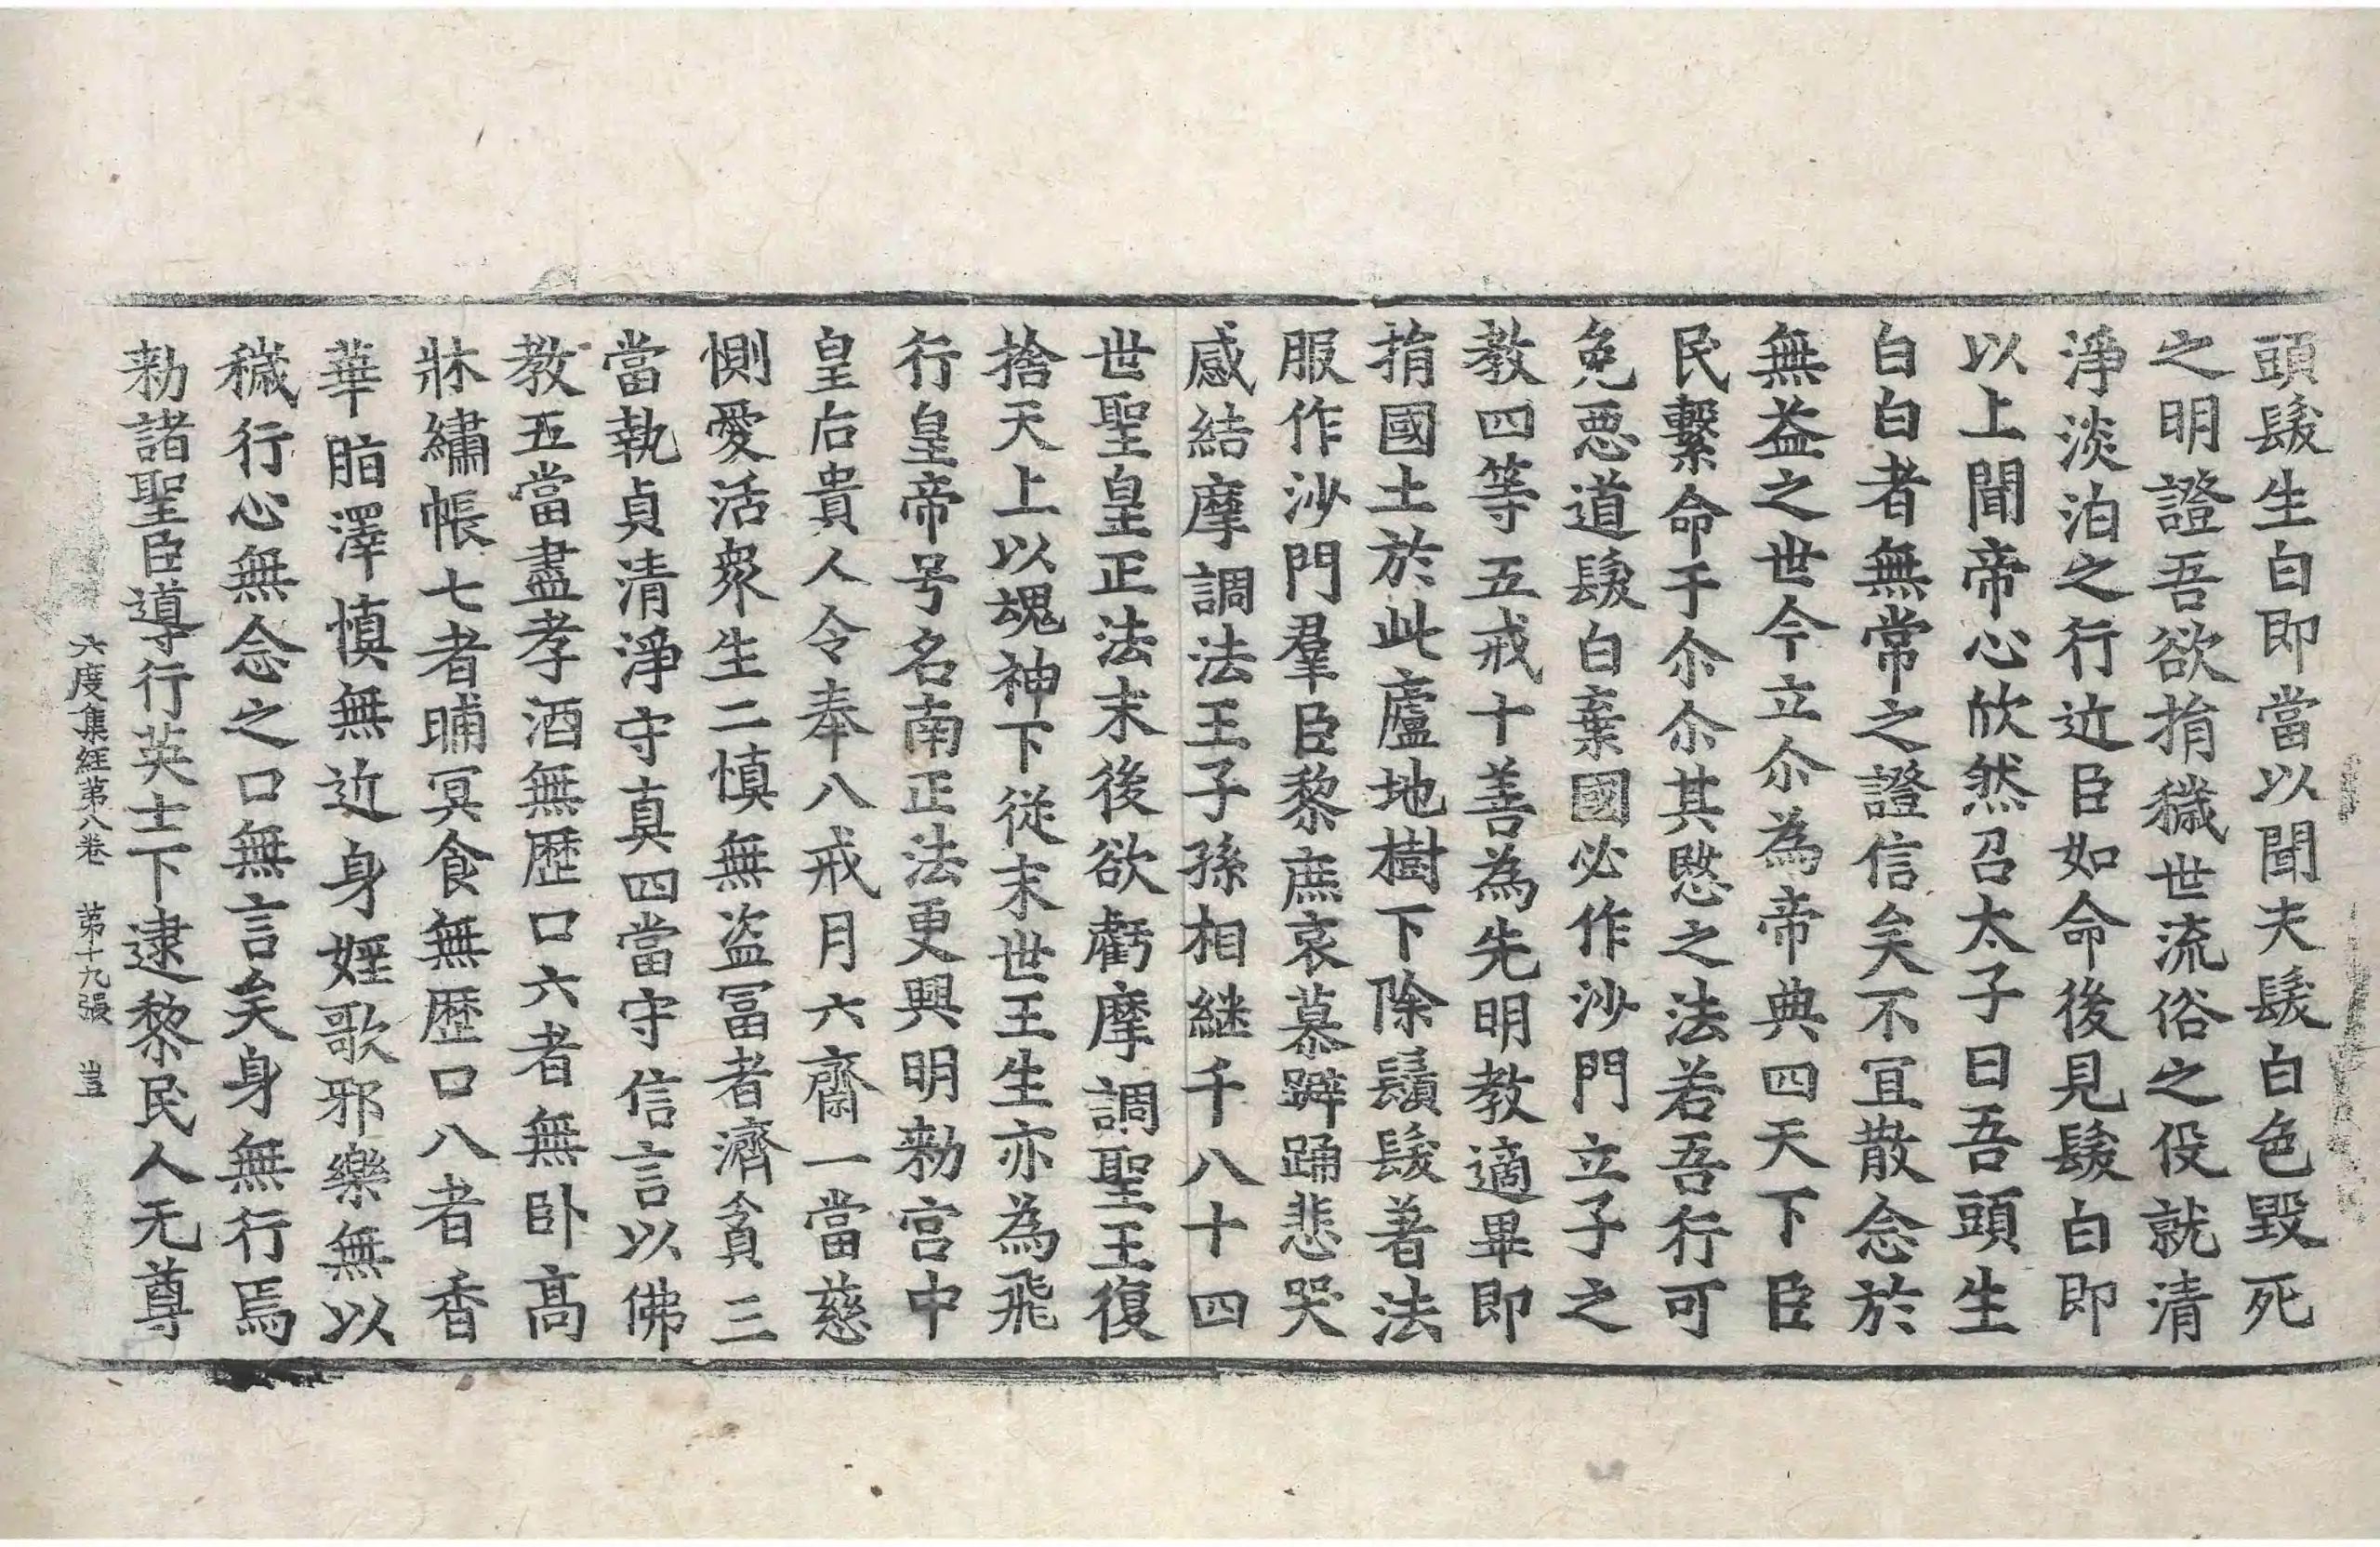 頭髮生白即當以聞夫髮白色毀死
之明證吾欲捐穢世流俗之役就清
淨淡泊之行近臣如命後見髮白即
以上聞帝心欣然召太子曰吾頭生
白白者無常之證信矣不冝散念於
無益之世今立尒為帝典四天下臣
民繫命于尒尒其愍之法若吾行可
免惡道髮白棄國必作沙門立子之
教四等五戒十善為先明教適畢即
捐國土於此廬地樹下除鬚髮著法
服作沙門羣臣黎庶哀慕躃踊悲哭
感結摩調法王子孫相継千八十四
世聖皇正法末後欲虧摩調聖王復
捨天上以魂神下従末世王生亦為飛
行皇帝号名南正法更興明勑宮中
皇后貴人令奉八戒月六齋一當慈
惻愛活衆生二慎無盗冨者濟貧三
當執貞清淨守真四當守信言以佛
教五當盡孝酒無歷口六者無卧高
牀繡帳七者晡冥食無歷口八者香
華脂澤慎無近身婬歌邪樂無以
穢行心無念之口無言矣身無行焉
勑諸聖臣導行英士下逮黎民人无尊
六度集経第八卷 第十九張 豈